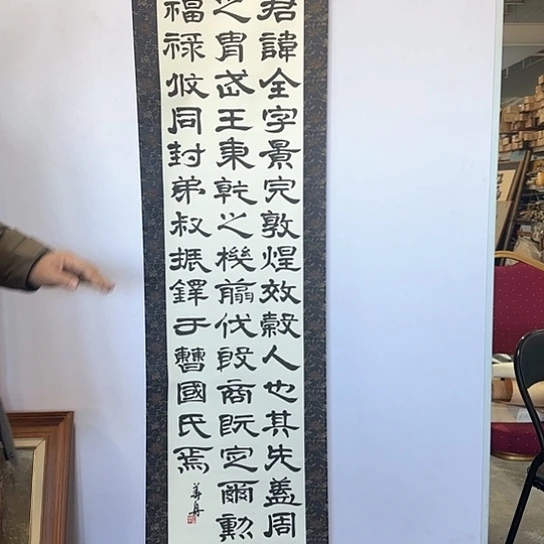 君諱全字景完敦煌效穀人也其先蓋周
之胄武王秉乾之機翦伐殷商既定爾勳
福祿攸同封弟叔振鐸于曹國氏焉